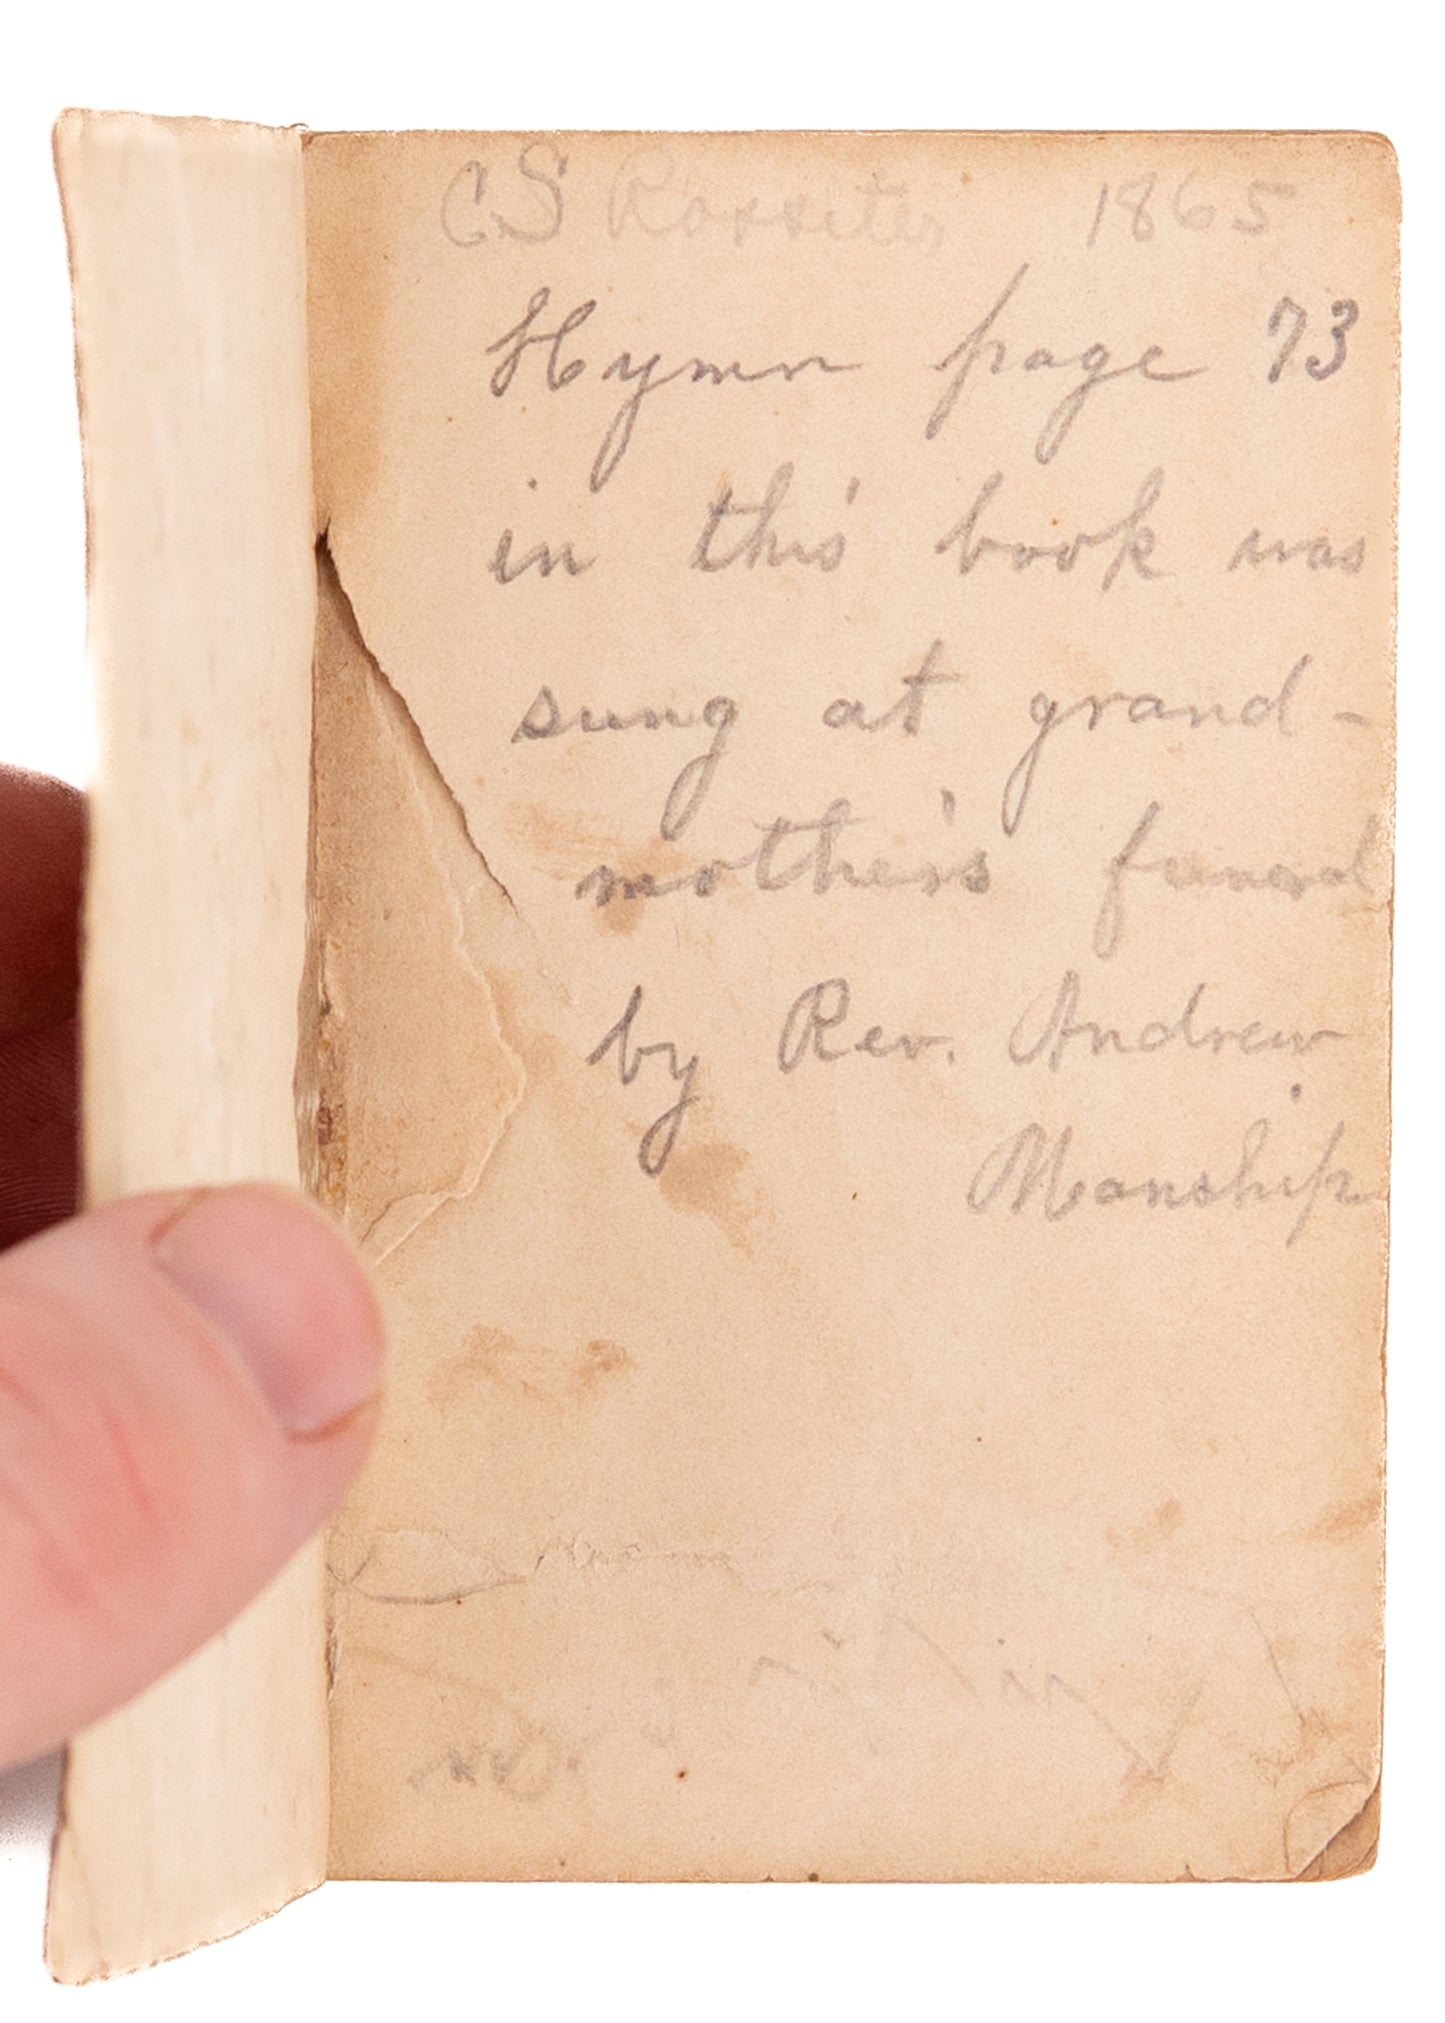 CS Rossiter 1865
Hymn page 73
in this book was
sung at grand-
mother's funeral
by Rev. Andrew
Manship